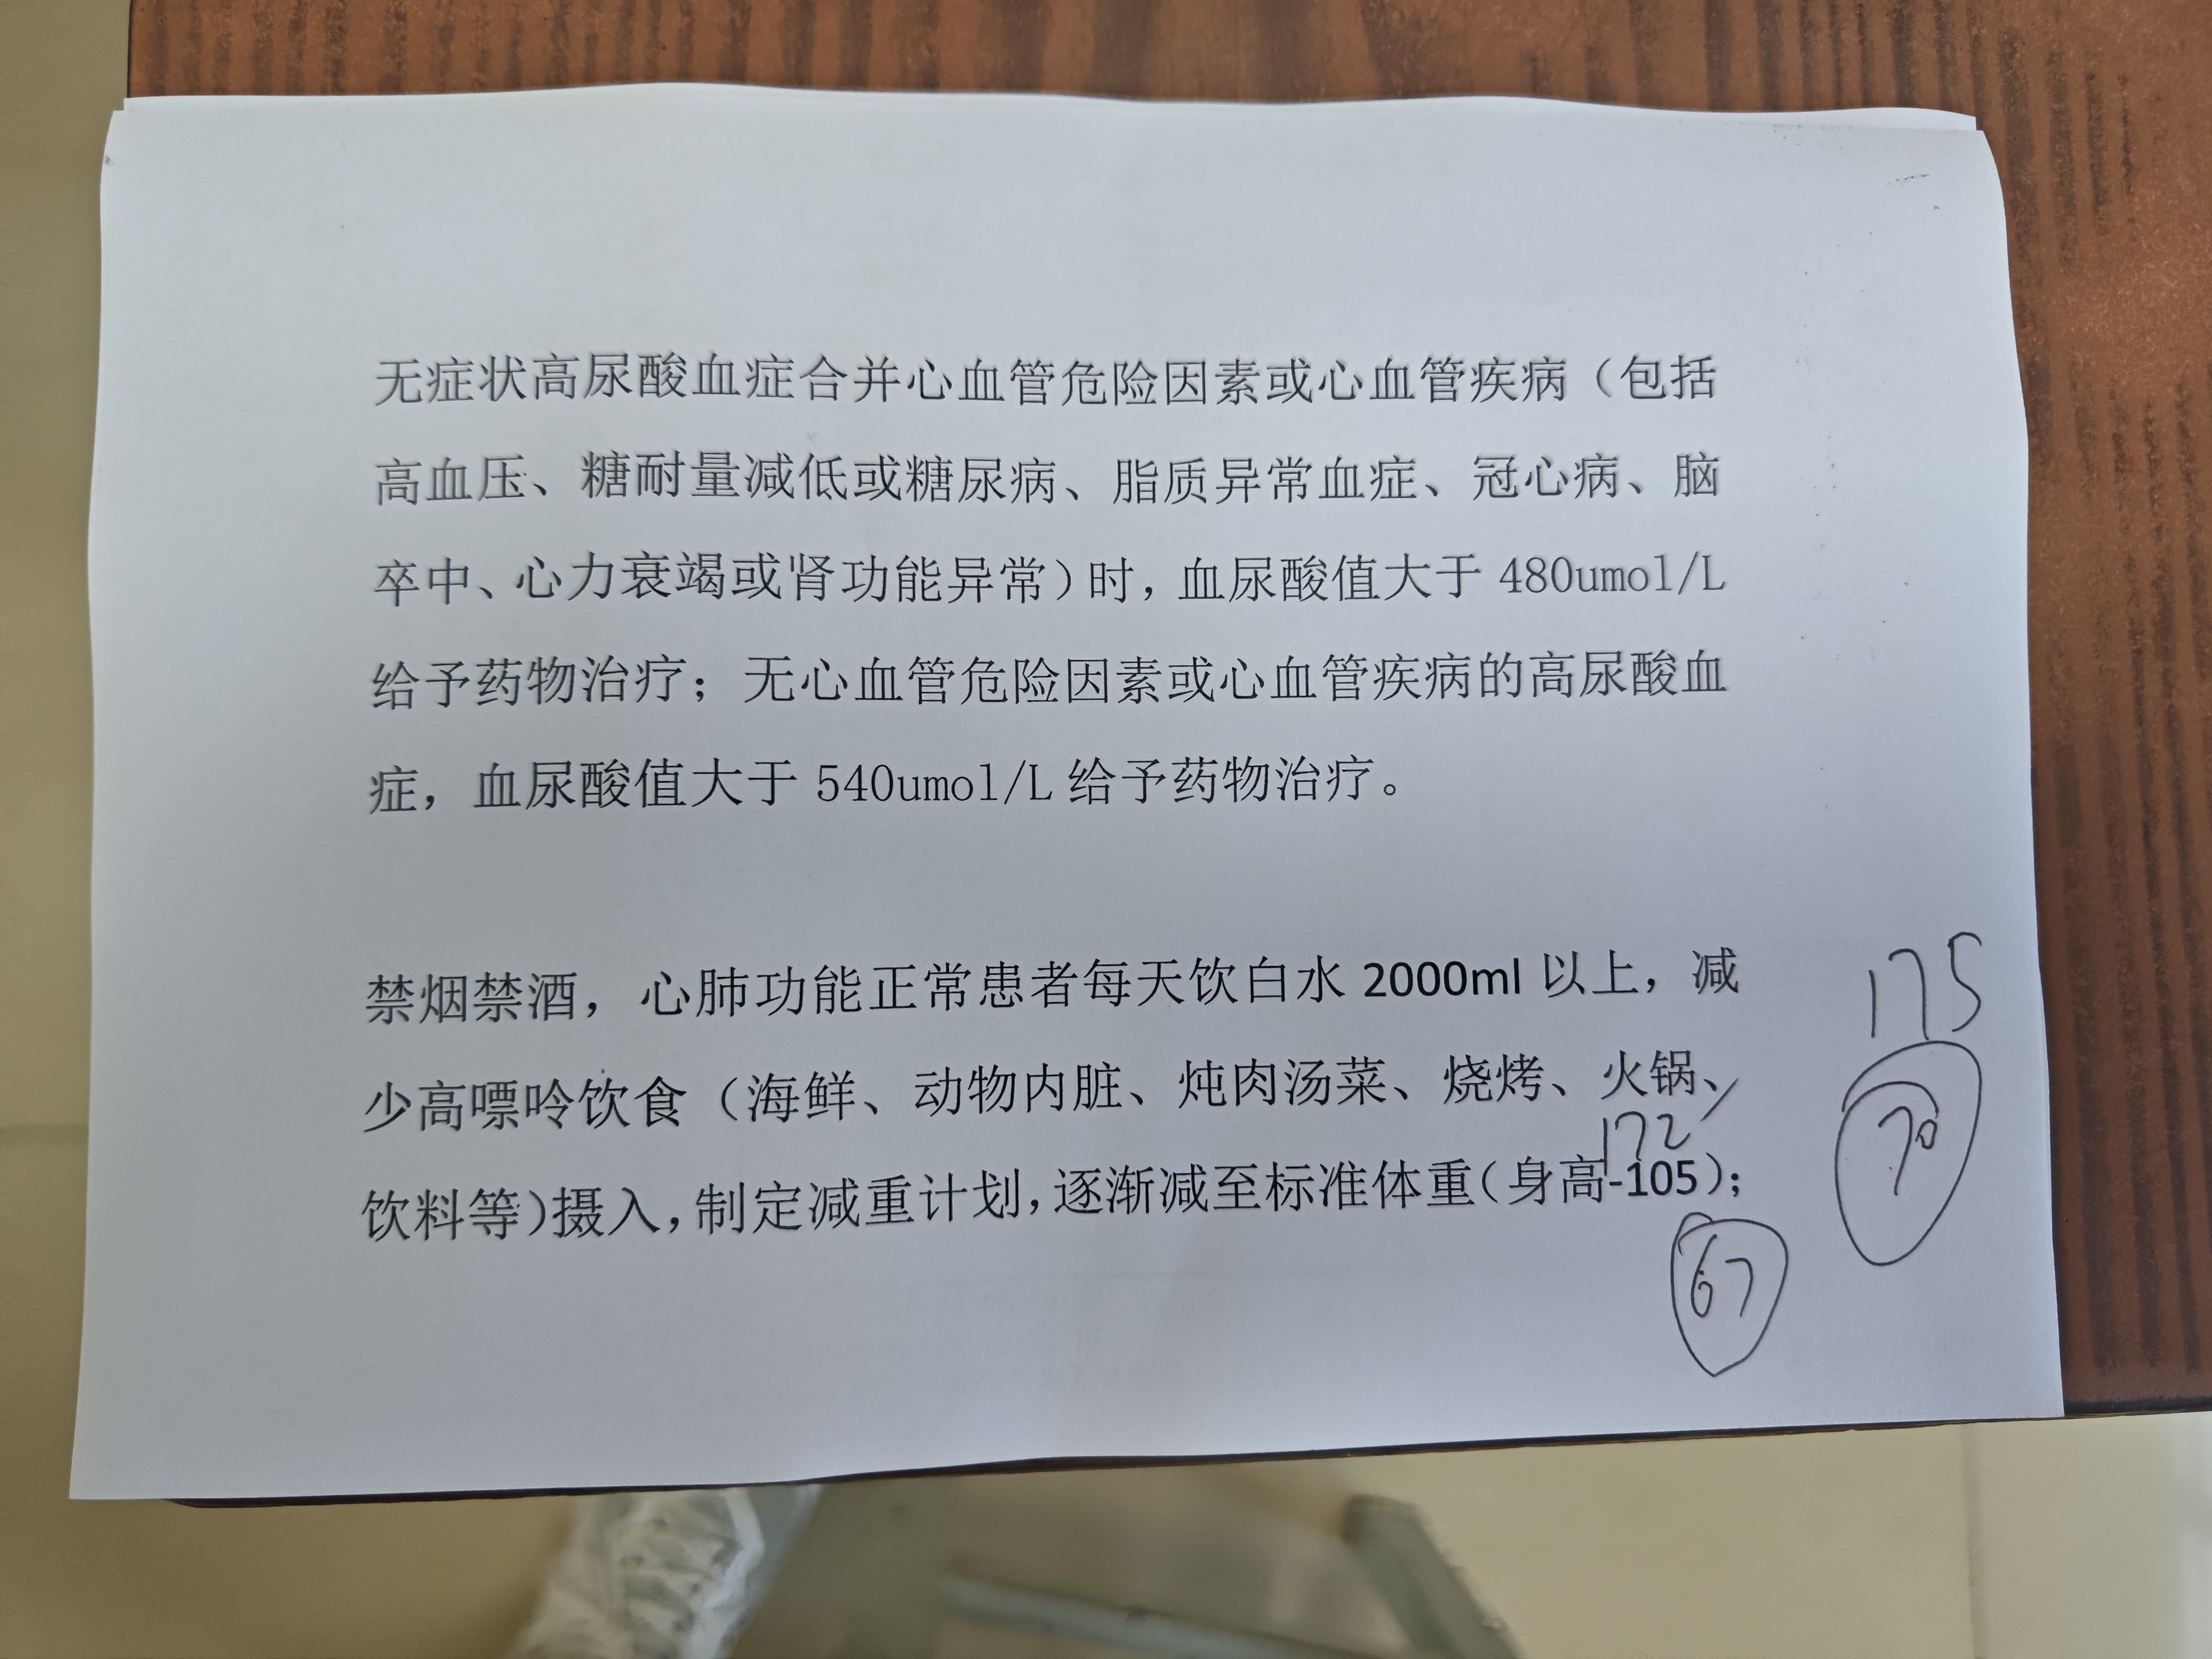 无症状高尿酸血症合并心血管危险因素或心血管疾病（包括
高血压、糖耐量减低或糖尿病、脂质异常血症、冠心病、脑
卒中、心力衰竭或肾功能异常）时，血尿酸值大于 480umol/L
给予药物治疗；无心血管危险因素或心血管疾病的高尿酸血
症，血尿酸值大于 540umol/L 给予药物治疗。
禁烟禁酒，心肺功能正常患者每天饮白水 2000ml 以上，减
少高嘌呤饮食（海鲜、动物内脏、炖肉汤菜、烧烤、火锅、
饮料等）摄入，制定减重计划，逐渐减至标准体重（身高-105）；
175
70
172
67